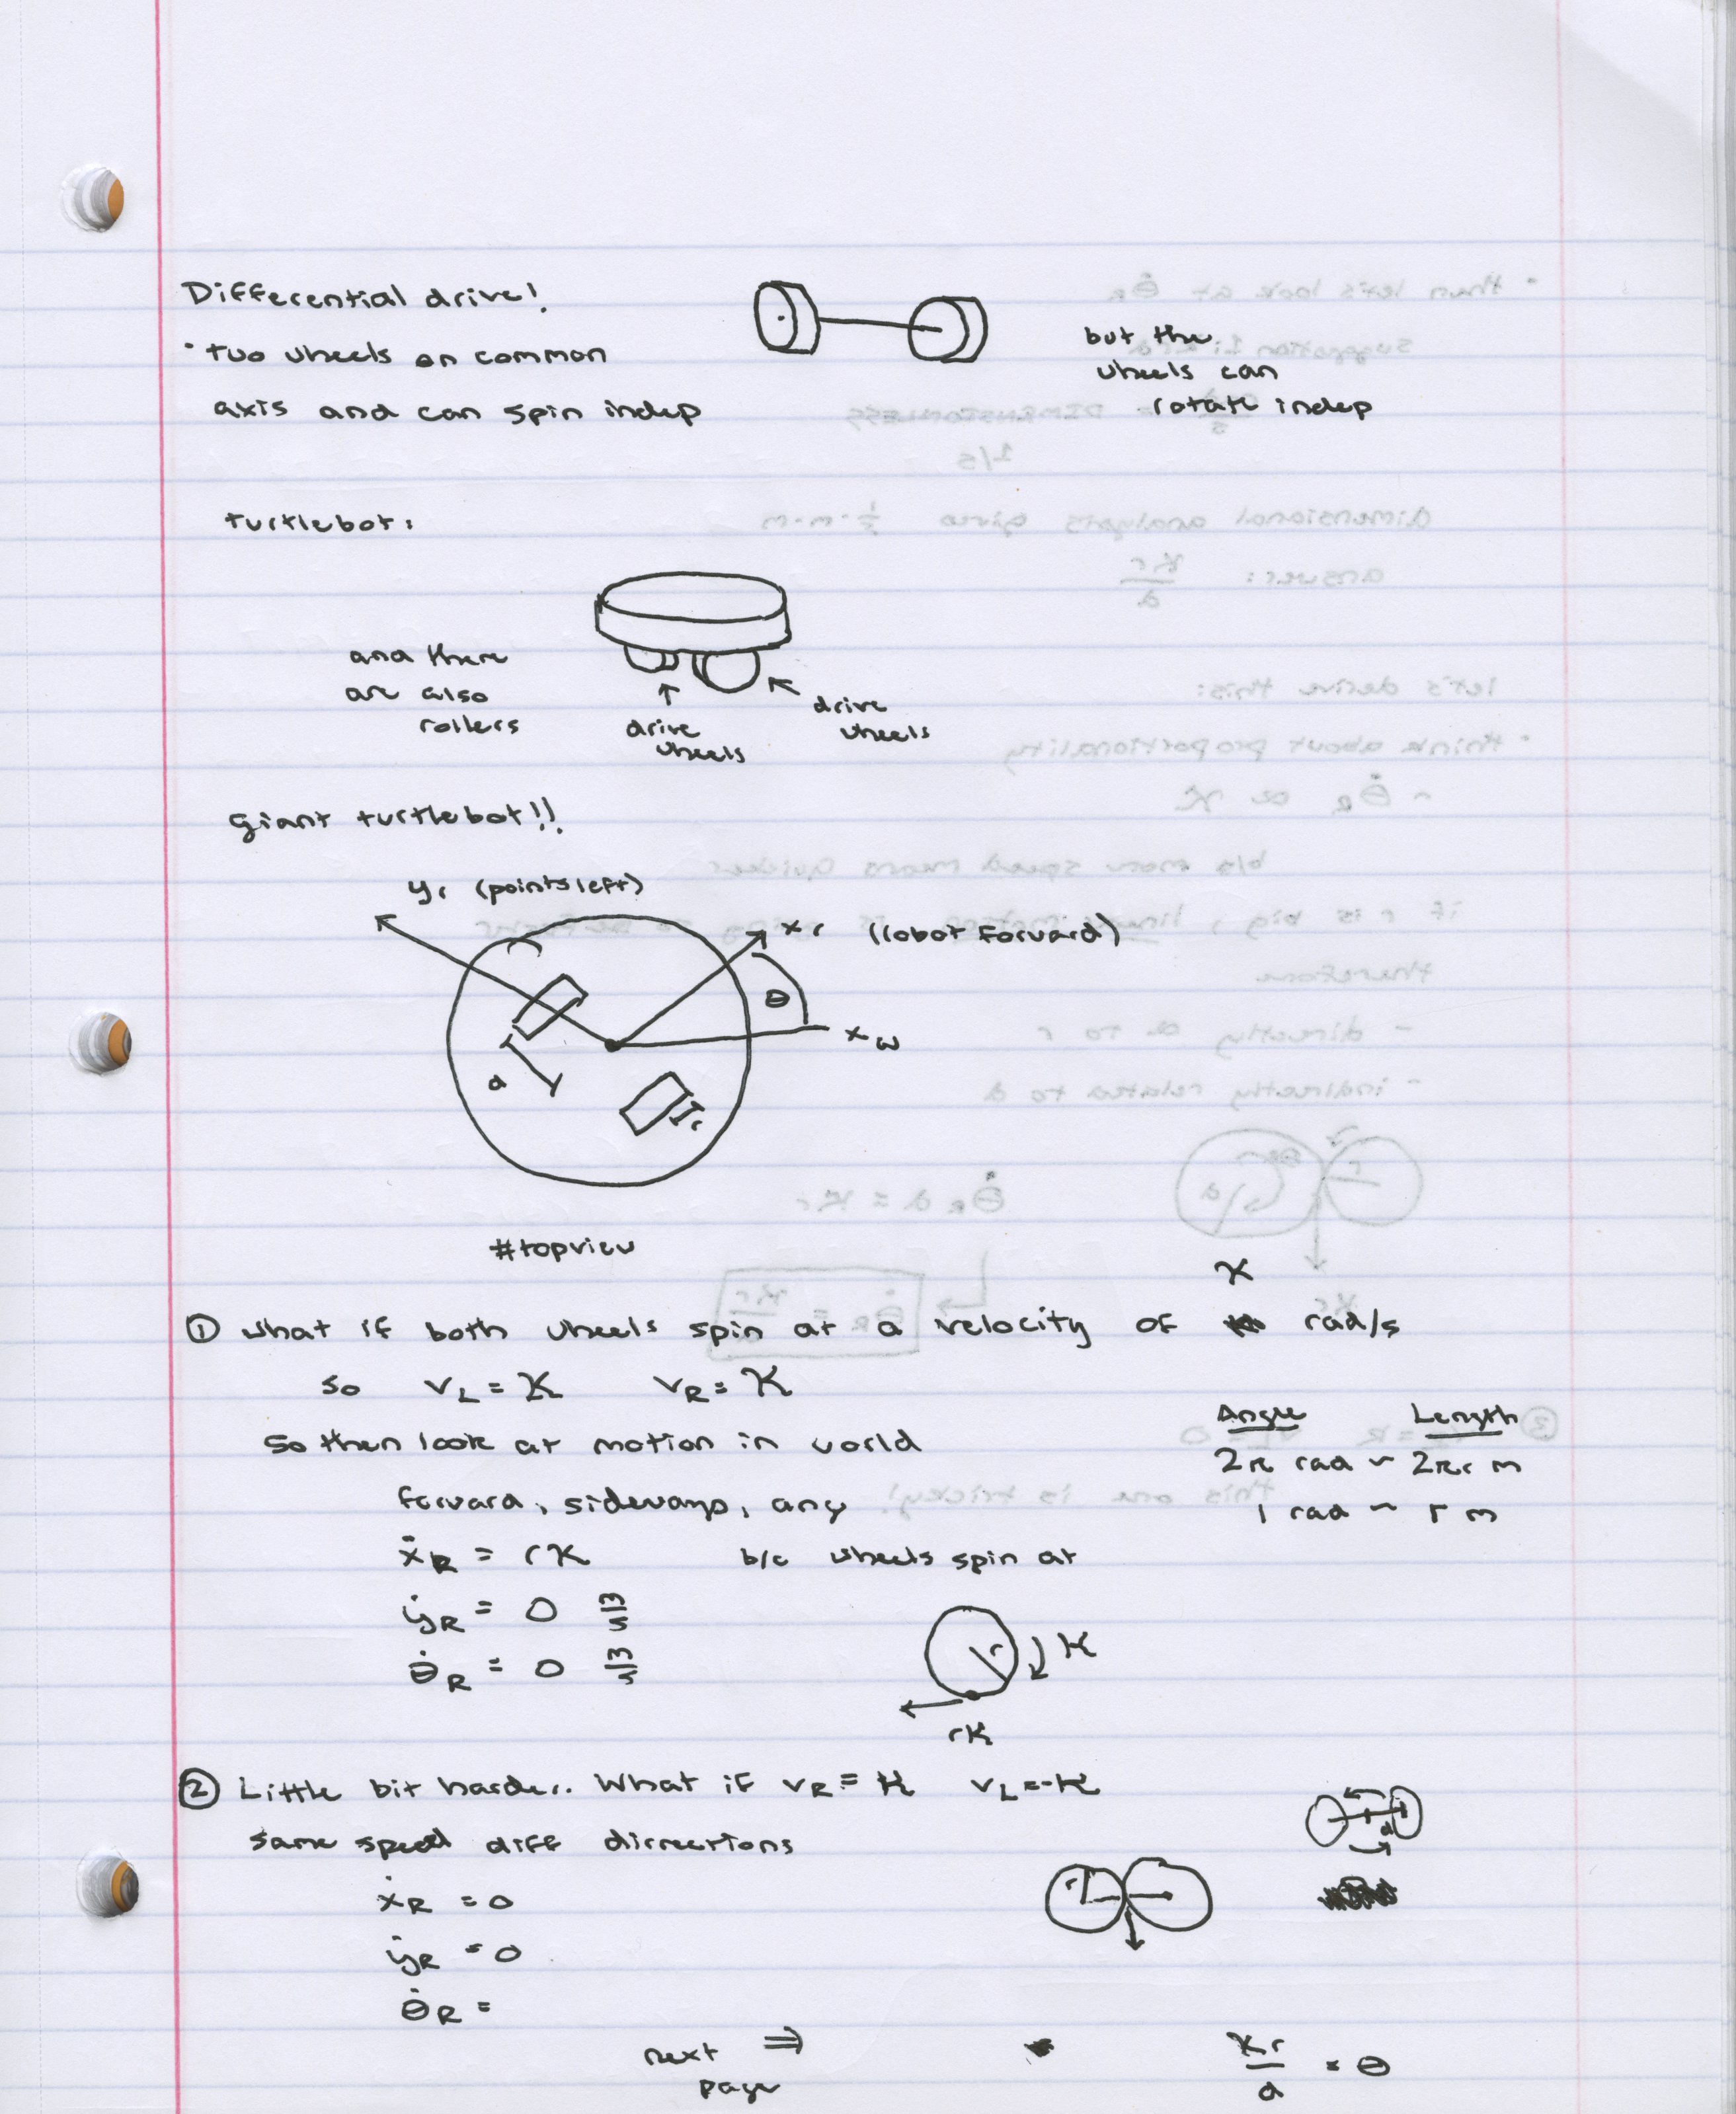 Differential drive!
• two wheels on common
axis and can spin indep
but the
wheels can
rotate indep
turtlebot:
and there
are also
rollers
drive
wheels
drive
wheels
Giant turtlebot!!
yr (points left)
xr (robot forward)
θ
xw
d
r
#topview
① what if both wheels spin at a velocity of K rad/s
so vL = K vR = K
so then look at motion in world
forward, sideways, any
Angle Length
2π rad ~ 2πr m
1 rad ~ r m
ẋR = rK b/c wheels spin at
ẏR = 0 m/s
θ̇R = 0 m/s
r
K
rK
② Little bit harder. What if vR = K vL = -K
same speed diff dirrections
ẋR = 0
ẏR = 0
θ̇R =
d
r
next ⇒
page
Kr/d = θ